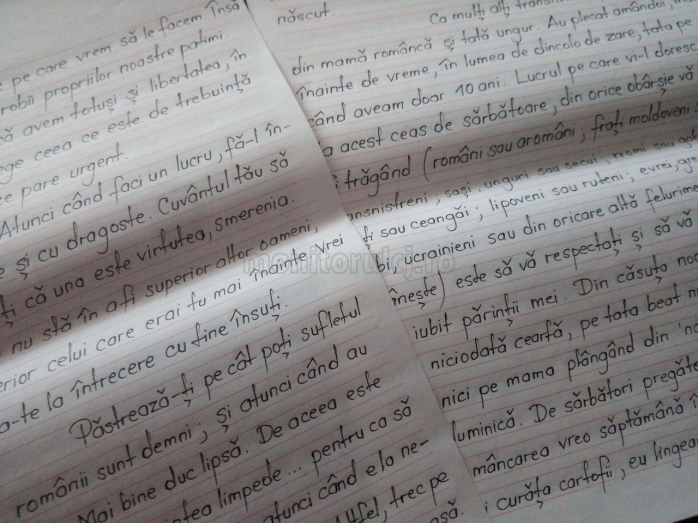 pe care vrem să le facem. Însă
robii propriilor noastre patimi.
că avem totuși și libertatea, în
ege ceea ce este de trebuință
ce pare urgent.
Atunci când faci un lucru, fă-l în-
e și cu dragoste. Cuvântul tău să
ți că una este virtutea, smerenia.
nu stă în a fi superior altor oameni,
erior celui care erai tu mai înainte. Vrei
a-te la întrecere cu tine însuți.
Păstrează-ți pe cât poți sufletul
românii sunt demni; și atunci când au
Mai bine duc lipsă. De aceea este
ntea limpede... pentru ca să
atunci când e la ne-
Altfel, trec pe
născut.
Ca mulți alți
din mamă româncă și tată ungur. Au plecat amândoi,
înainte de vreme, în lumea de dincolo de zare, tata pe
când aveam doar 10 ani. Lucrul pe care vi-l doresc
a acest ceas de sărbătoare, din orice obârșie vă
trăgând (români sau aromâni; frați moldoveni
ansnistreni, sași, unguri sau secui,
ți sau ceangăi; lipoveni sau ruteni; evrei,
bi, ucrainieni sau din oricare altă felurim
înește) este să vă respectați și să vă
iubit părinții mei. Din căsuța noa
niciodată ceartă, pe tata beat n
nici pe mama plângând din
luminică. De sărbători pregăte
mâncarea vreo săptămână î
i curăța cartofii, eu lingea
asă.
monitorulcj.ro